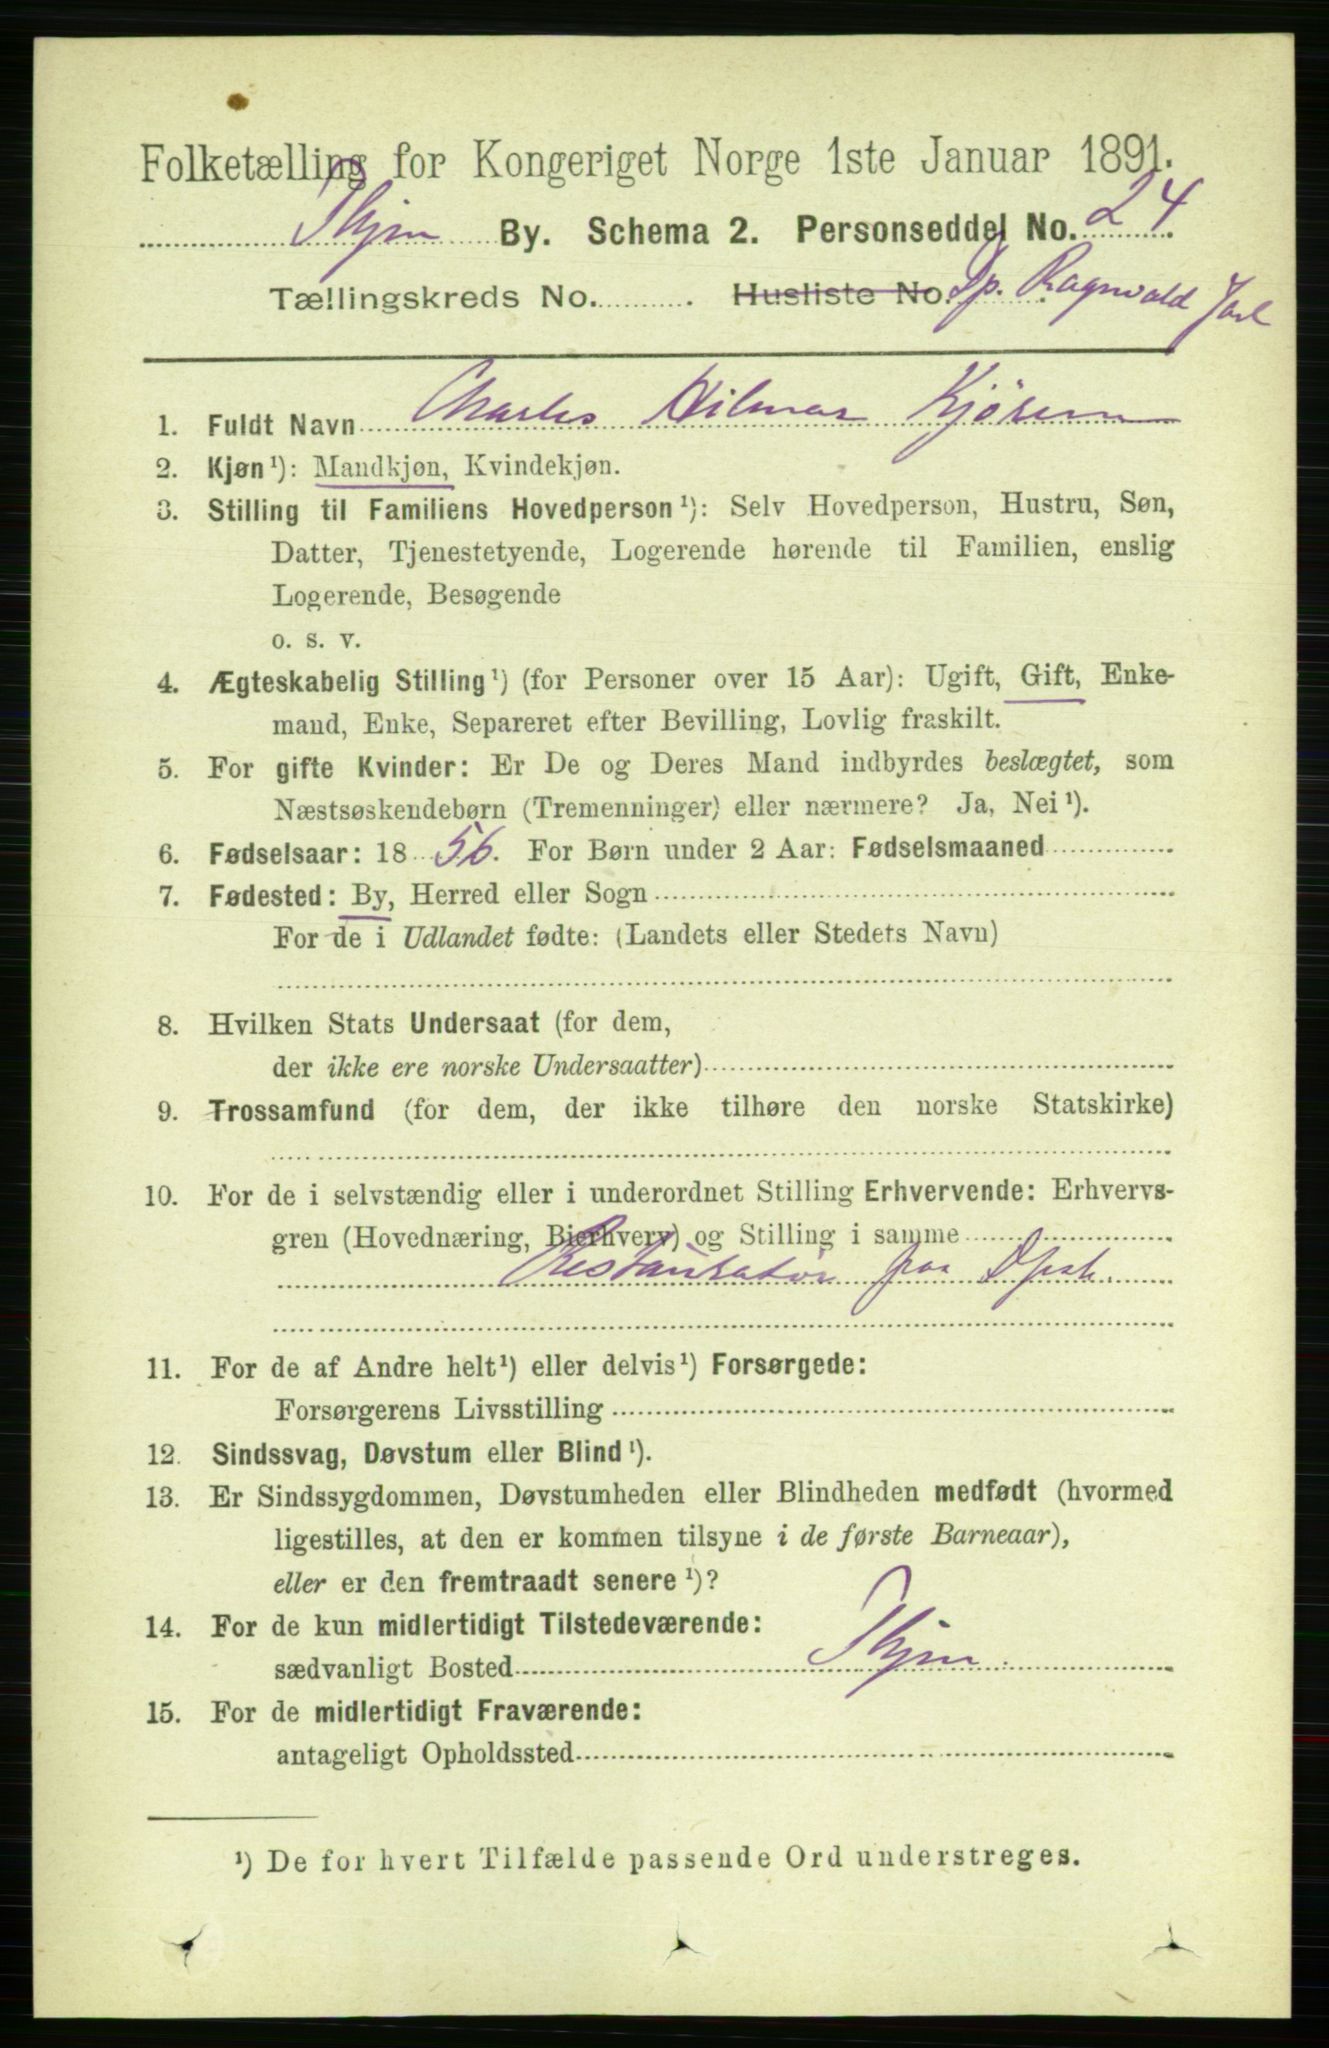 Folketælling for Kongeriget Norge 1ste Januar 1891.
Thjm By. Schema 2. Personseddel No. 24
Tællingskreds No. . Husliste No. Dp. Ragnvald Jarl
1. Fuldt Navn Charles Hilmar Kjösen
2. Kjøn¹): Mandkjøn, Kvindekjøn.
3. Stilling til Familiens Hovedperson¹): Selv Hovedperson, Hustru, Søn,
Datter, Tjenestetyende, Logerende hørende til Familien, enslig
Logerende, Besøgende
o. s. v.
4. Ægteskabelig Stilling¹) (for Personer over 15 Aar): Ugift, Gift, Enke-
mand, Enke, Separeret efter Bevilling, Lovlig fraskilt.
5. For gifte Kvinder: Er De og Deres Mand indbyrdes beslægtet, som
Næstsøskendebørn (Tremenninger) eller nærmere? Ja, Nei¹).
6. Fødselsaar: 18 56. For Børn under 2 Aar: Fødselsmaaned
7. Fødested: By, Herred eller Sogn
For de i Udlandet fødte: (Landets eller Stedets Navn)
8. Hvilken Stats Undersaat (for dem,
der ikke ere norske Undersaatter)
9. Trossamfund (for dem, der ikke tilhøre den norske Statskirke)
10. For de i selvstændig eller i underordnet Stilling Erhvervende: Erhvervs-
gren (Hovednæring, Bierhverv) og Stilling i samme
Restauratør paa Dpsk.
11. For de af Andre helt¹) eller delvis¹) Forsørgede:
Forsørgerens Livsstilling
12. Sindssvag, Døvstum eller Blind¹).
13. Er Sindssygdommen, Døvstumheden eller Blindheden medfødt (hvormed
ligestilles, at den er kommen tilsyne i de første Barneaar),
eller er den fremtraadt senere¹)?
14. For de kun midlertidigt Tilstedeværende:
sædvanligt Bosted Thjm
15. For de midlertidigt Fraværende:
antageligt Opholdssted
¹) De for hvert Tilfælde passende Ord understreges.